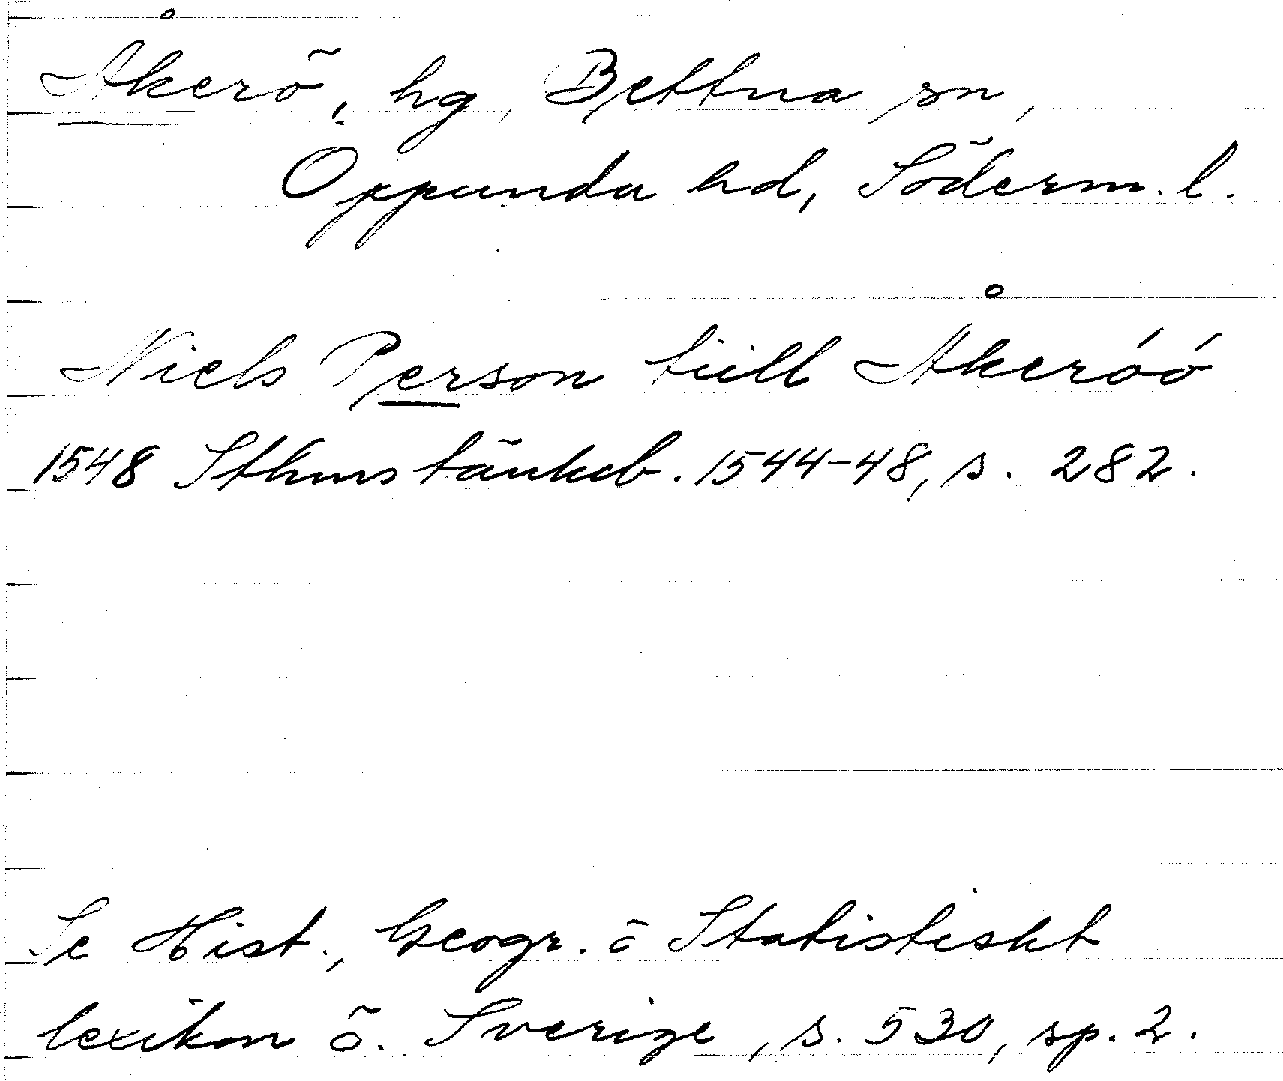 Åkerö, hg, Bettna sn,
Oppunda hd, Söderm. l.
Niels Person tiill Åkeróó
1548 Sthms tänkeb. 1544-48, s. 282.
Se Hist., Geogr. o Statistiskt
lexikon ö. Sverige, s. 530, sp. 2.